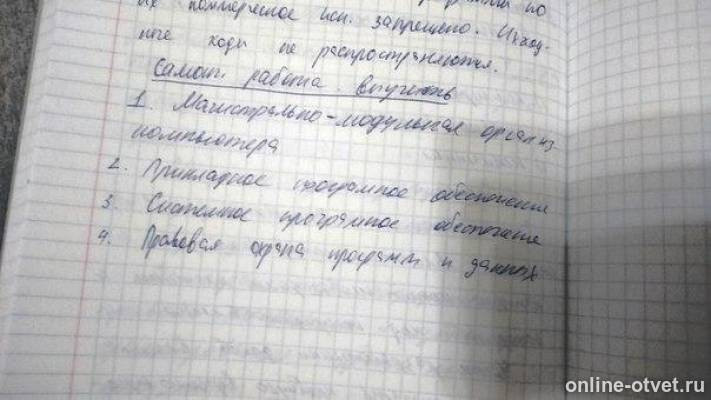 их коммерческое исп. запрещено. Исход-
ные коды не распространяются.
Самост. работа. Выучить
1. Магистрально-модульная организ
компьютера
2. Прикладное программное обеспечение
3. Системное программное обеспечение
4. Правовая охрана программ и данных
online-otvet.ru